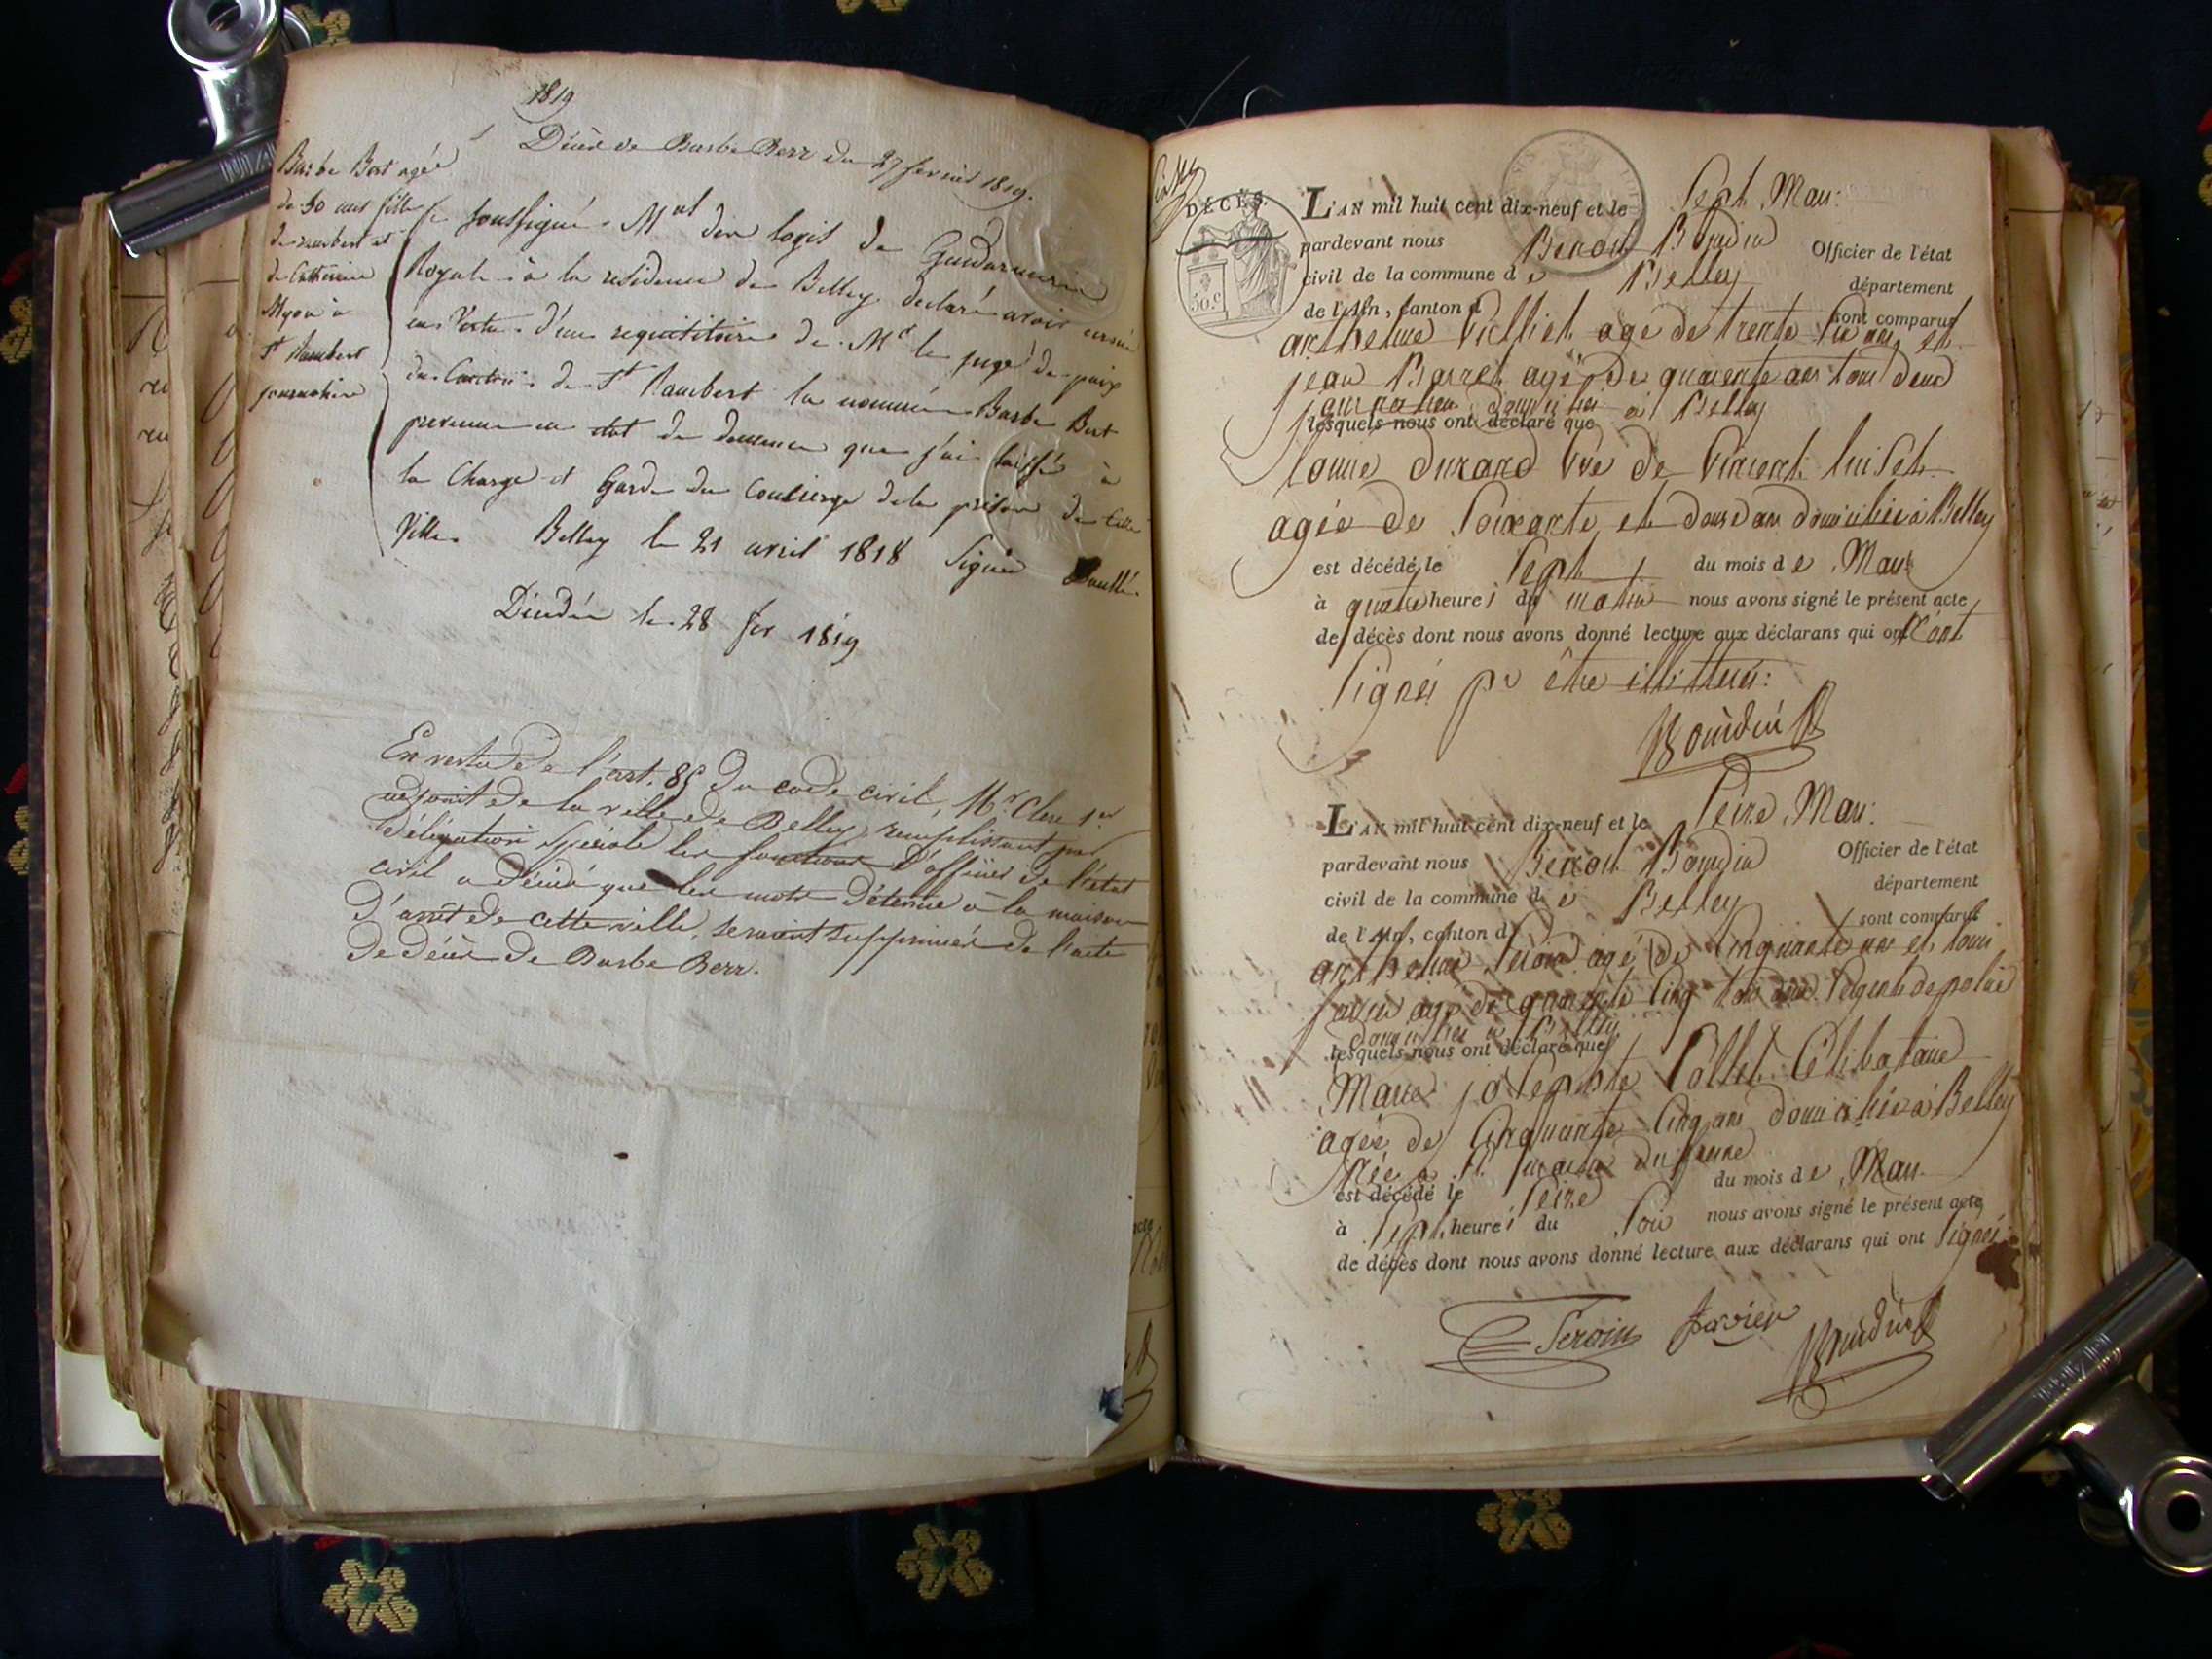 1819
Décès de Barbe Berr du 27 fevrier 1819.
Barbe Bert agée
de 50 ans fille
de et
de Catherine
Myon à
St Rambert
journaliere
Je soussigné Mal des logis de Gendarmerie
Royale à la residence de Belley declare avoir
en Vertu d'un requisitoire de Mr le juge de paix
du Canton de St Rambert la nommée Barbe Bert
prevenue en etat de demence que j'ai laissé à
la Charge et Garde du Concierge de la prison de cette
Ville. Belley le 21 avril 1818 Signé
Décédée le 28 fer 1819
En vertu de l'art. 85 du code civil, Mr Clerc 1er
adjoint de la ville de Belley, remplissant par
délégation spéciale les fonctions d'officier de l'état
civil a décidé que les mots détenue à la maison
d'arrêt de cette ville, seroient supprimés de l'acte
de décès de Barbe Berr.
DÉCÈS.
50.c
L'AN mil huit cent dix-neuf et le Sept Mars:
pardevant nous Benoit Bourdin Officier de l'état
civil de la commune de Belley département
de l'Ain, canton d sont comparus
anthelme Villiet agé de trente six ans et
jean Barret agé de quarente ans tous deux
journaliers domiciliés à Belley
lesquels nous ont déclaré que
Durand Vve de Vincent luiset
agée de Soixante et douze ans domiciliée à Belley
est décédé le Sept du mois de Mars
à quatre heures du matin nous avons signé le présent acte
de décès dont nous avons donné lecture aux déclarans qui ont n'ont
Signés pr être illitterés:
Bourdin
L'AN mil huit cent dix-neuf et le Seize Mars:
pardevant nous Benoit Bourdin Officier de l'état
civil de la commune de Belley département
de l'Ain, canton d sont comparus
anthelme Seroin agé de Cinquante ans et louis
javier agé de quarente Cinq tous deux Sergents de police
Domiciliés à Belley
lesquels nous ont déclaré que
Marie josephte Collet Célibataire
agée de Cinquante Cinq ans domiciliée à Belley
Née à St du
est décédé le Seize du mois de Mars
à Sept heures du Soir nous avons signé le présent acte
de décès dont nous avons donné lecture aux déclarans qui ont Signés
Seroin Javier Bourdin